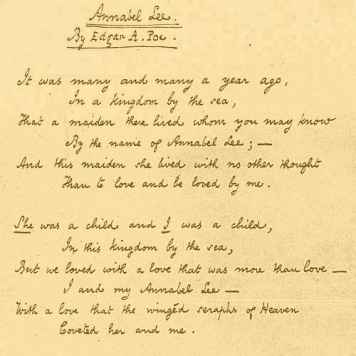 Annabel Lee.
By Edgar A. Poe.
It was many and many a year ago,
In a kingdom by the sea,
That a maiden there lived whom you may know
By the name of Annabel Lee; —
And this maiden she lived with no other thought
Than to love and be loved by me.
She was a child and I was a child,
In this kingdom by the sea,
But we loved with a love that was more than love —
I and my Annabel Lee —
With a love that the wingéd seraphs of Heaven
Coveted her and me.